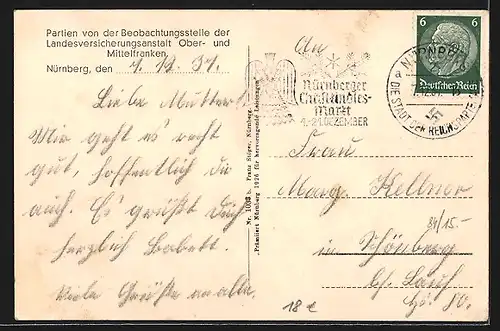 Partien von der Beobachtungsstelle der
Landesversicherungsanstalt Ober- und
Mittelfranken.
Nürnberg, den 7. 12. 37.
Liebe Mutter!
Mir geht es recht
gut, hoffentlich Dir
auch. Es grüßt Dich
herzlich Babett.
Viele Grüße an alle.
Nr. 1008 b. Franz Stüger, Nürnberg
Prämiiert Nürnberg 1926 für hervorragende Leistungen.
An
Nürnberger
Christkindles-
Markt
4.-24. DEZEMBER
NÜRNBERG
a
DIE STADT DER REICHSPARTEITAGE
6 6
Deutsches Reich
Frau
Marg. Kellner
34/15.-
in Schönberg
bei Lauf
Hs. 80.
18 €